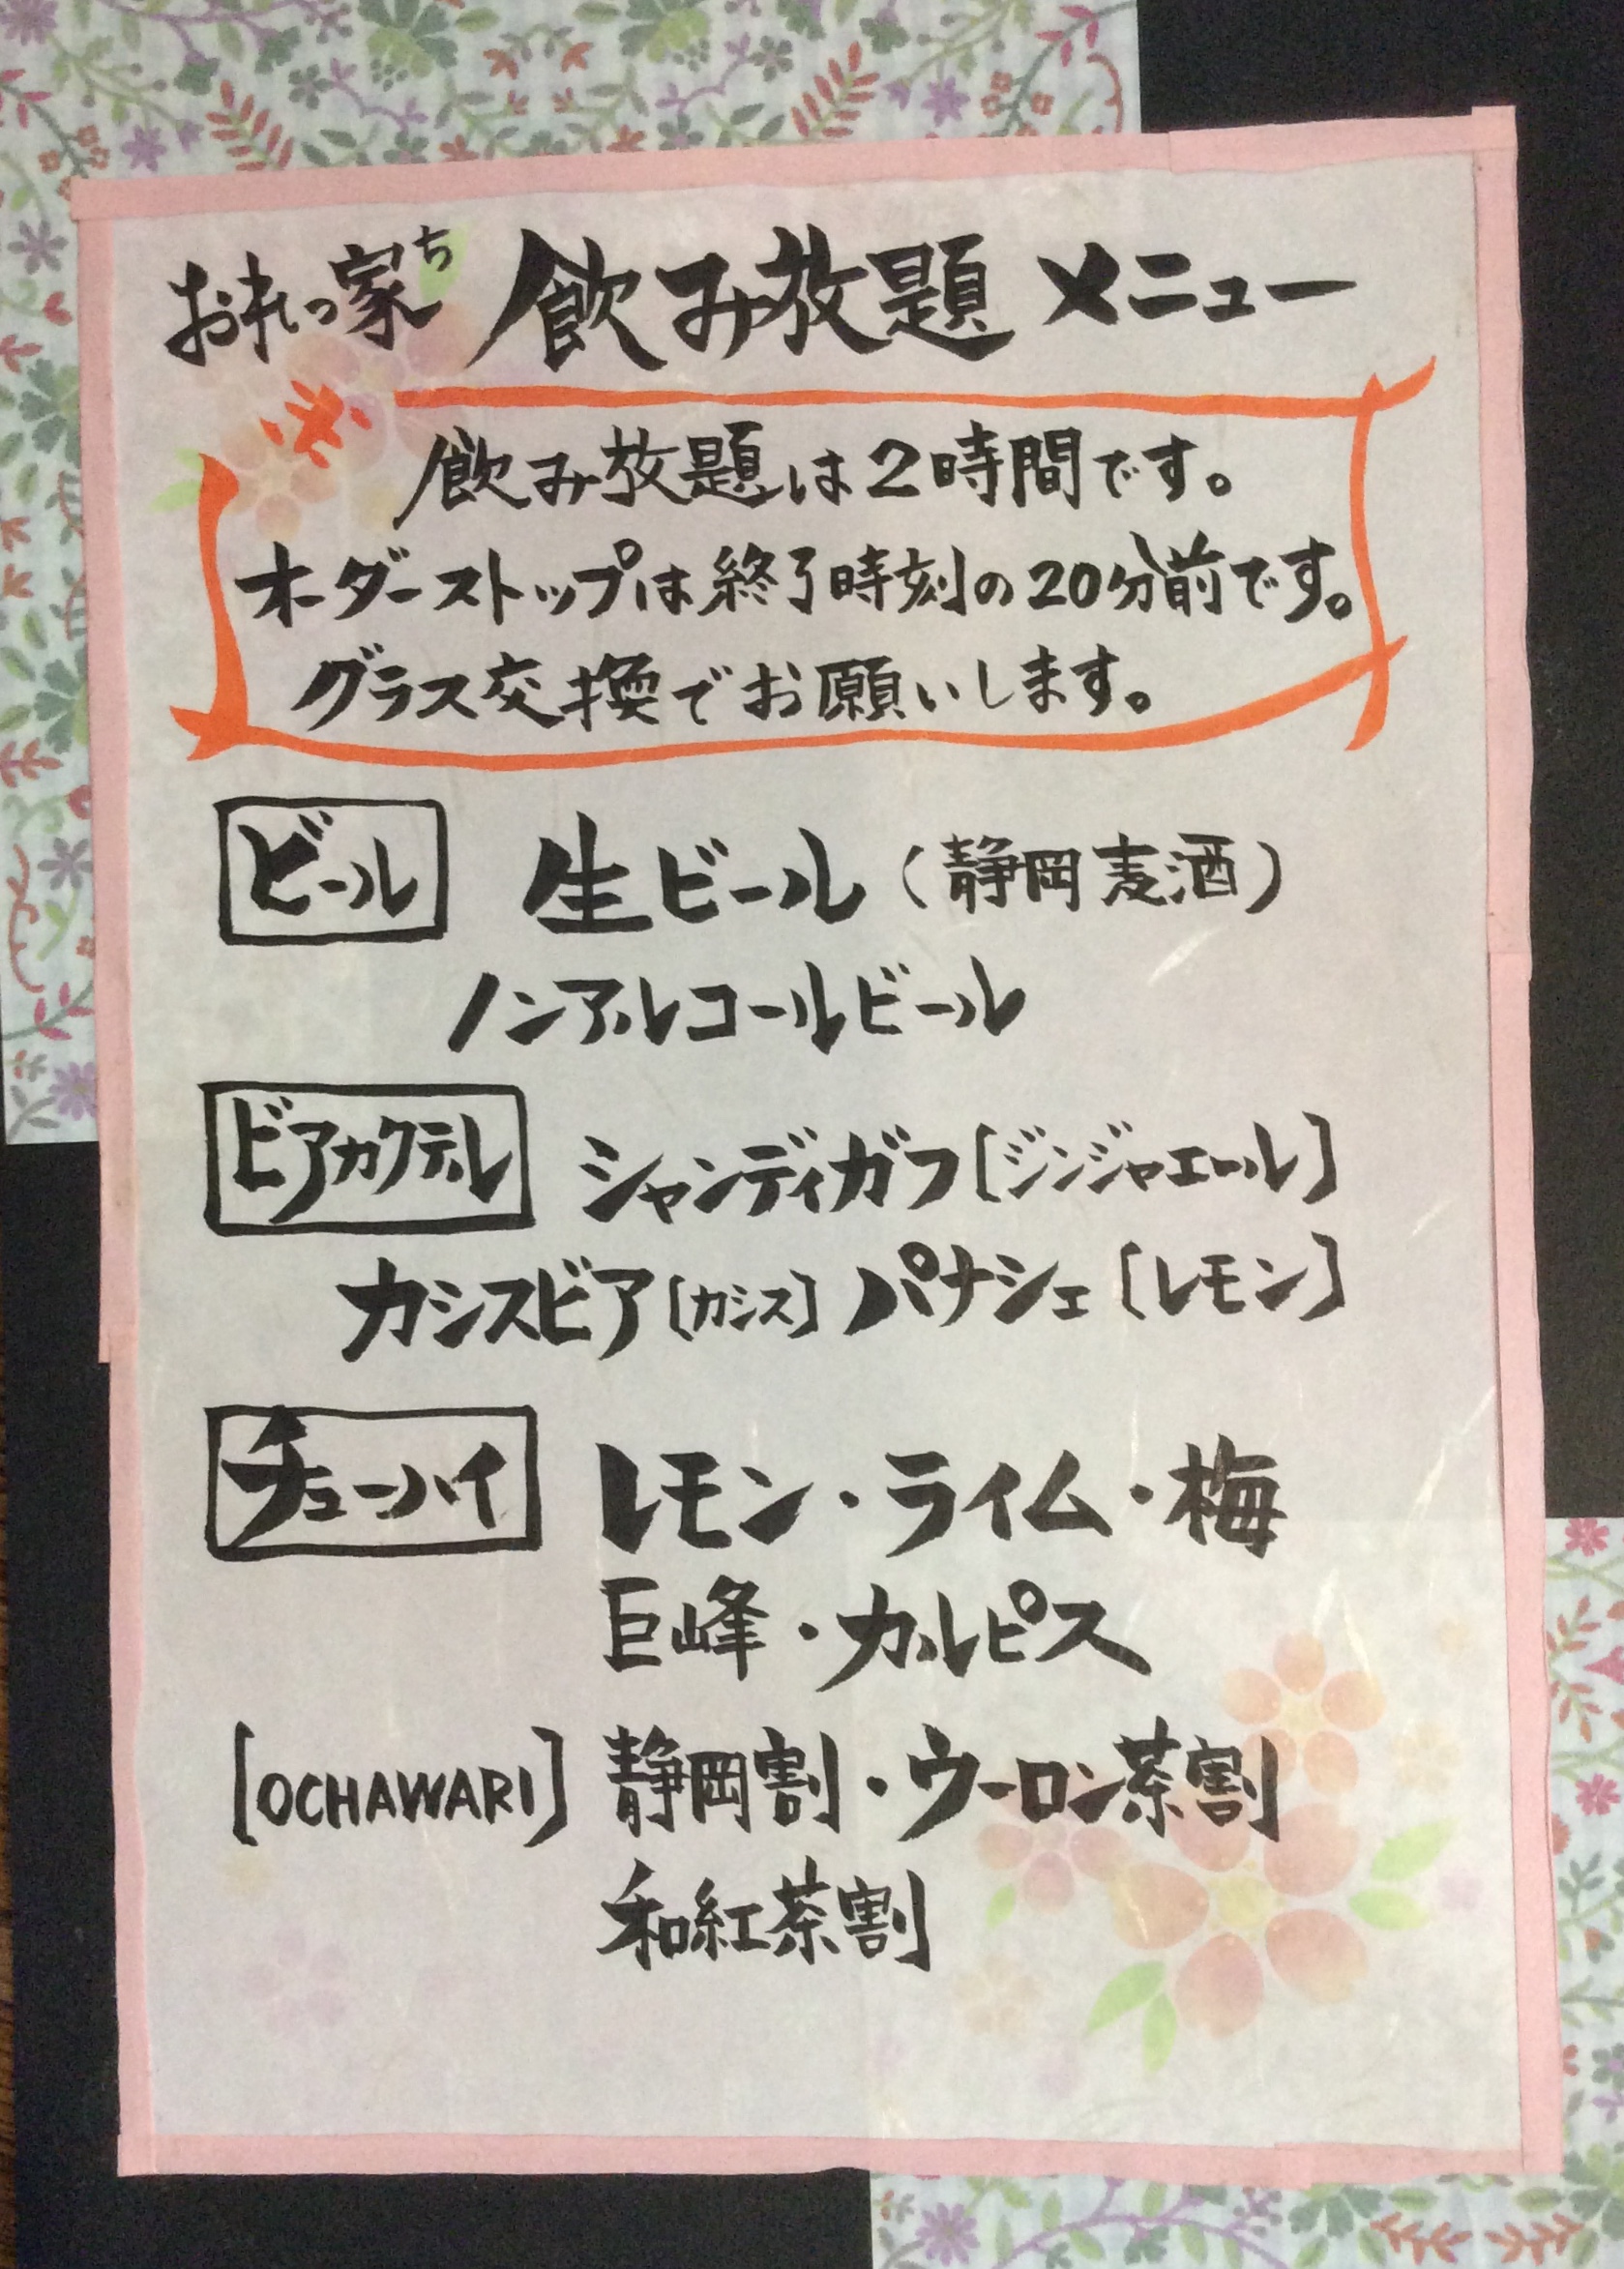 おれっ家ち 飲み放題 メニュー
※
飲み放題は2時間です。
オーダーストップは終了時刻の20分前です。
グラス交換でお願いします。
ビール 生ビール(静岡麦酒)
ノンアルコールビール
ビアカクテル シャンディガフ[ジンジャエール]
カシスビア[カシス] パナシェ[レモン]
チューハイ レモン・ライム・梅
巨峰・カルピス
[OCHAWARI] 静岡割・ウーロン茶割
和紅茶割